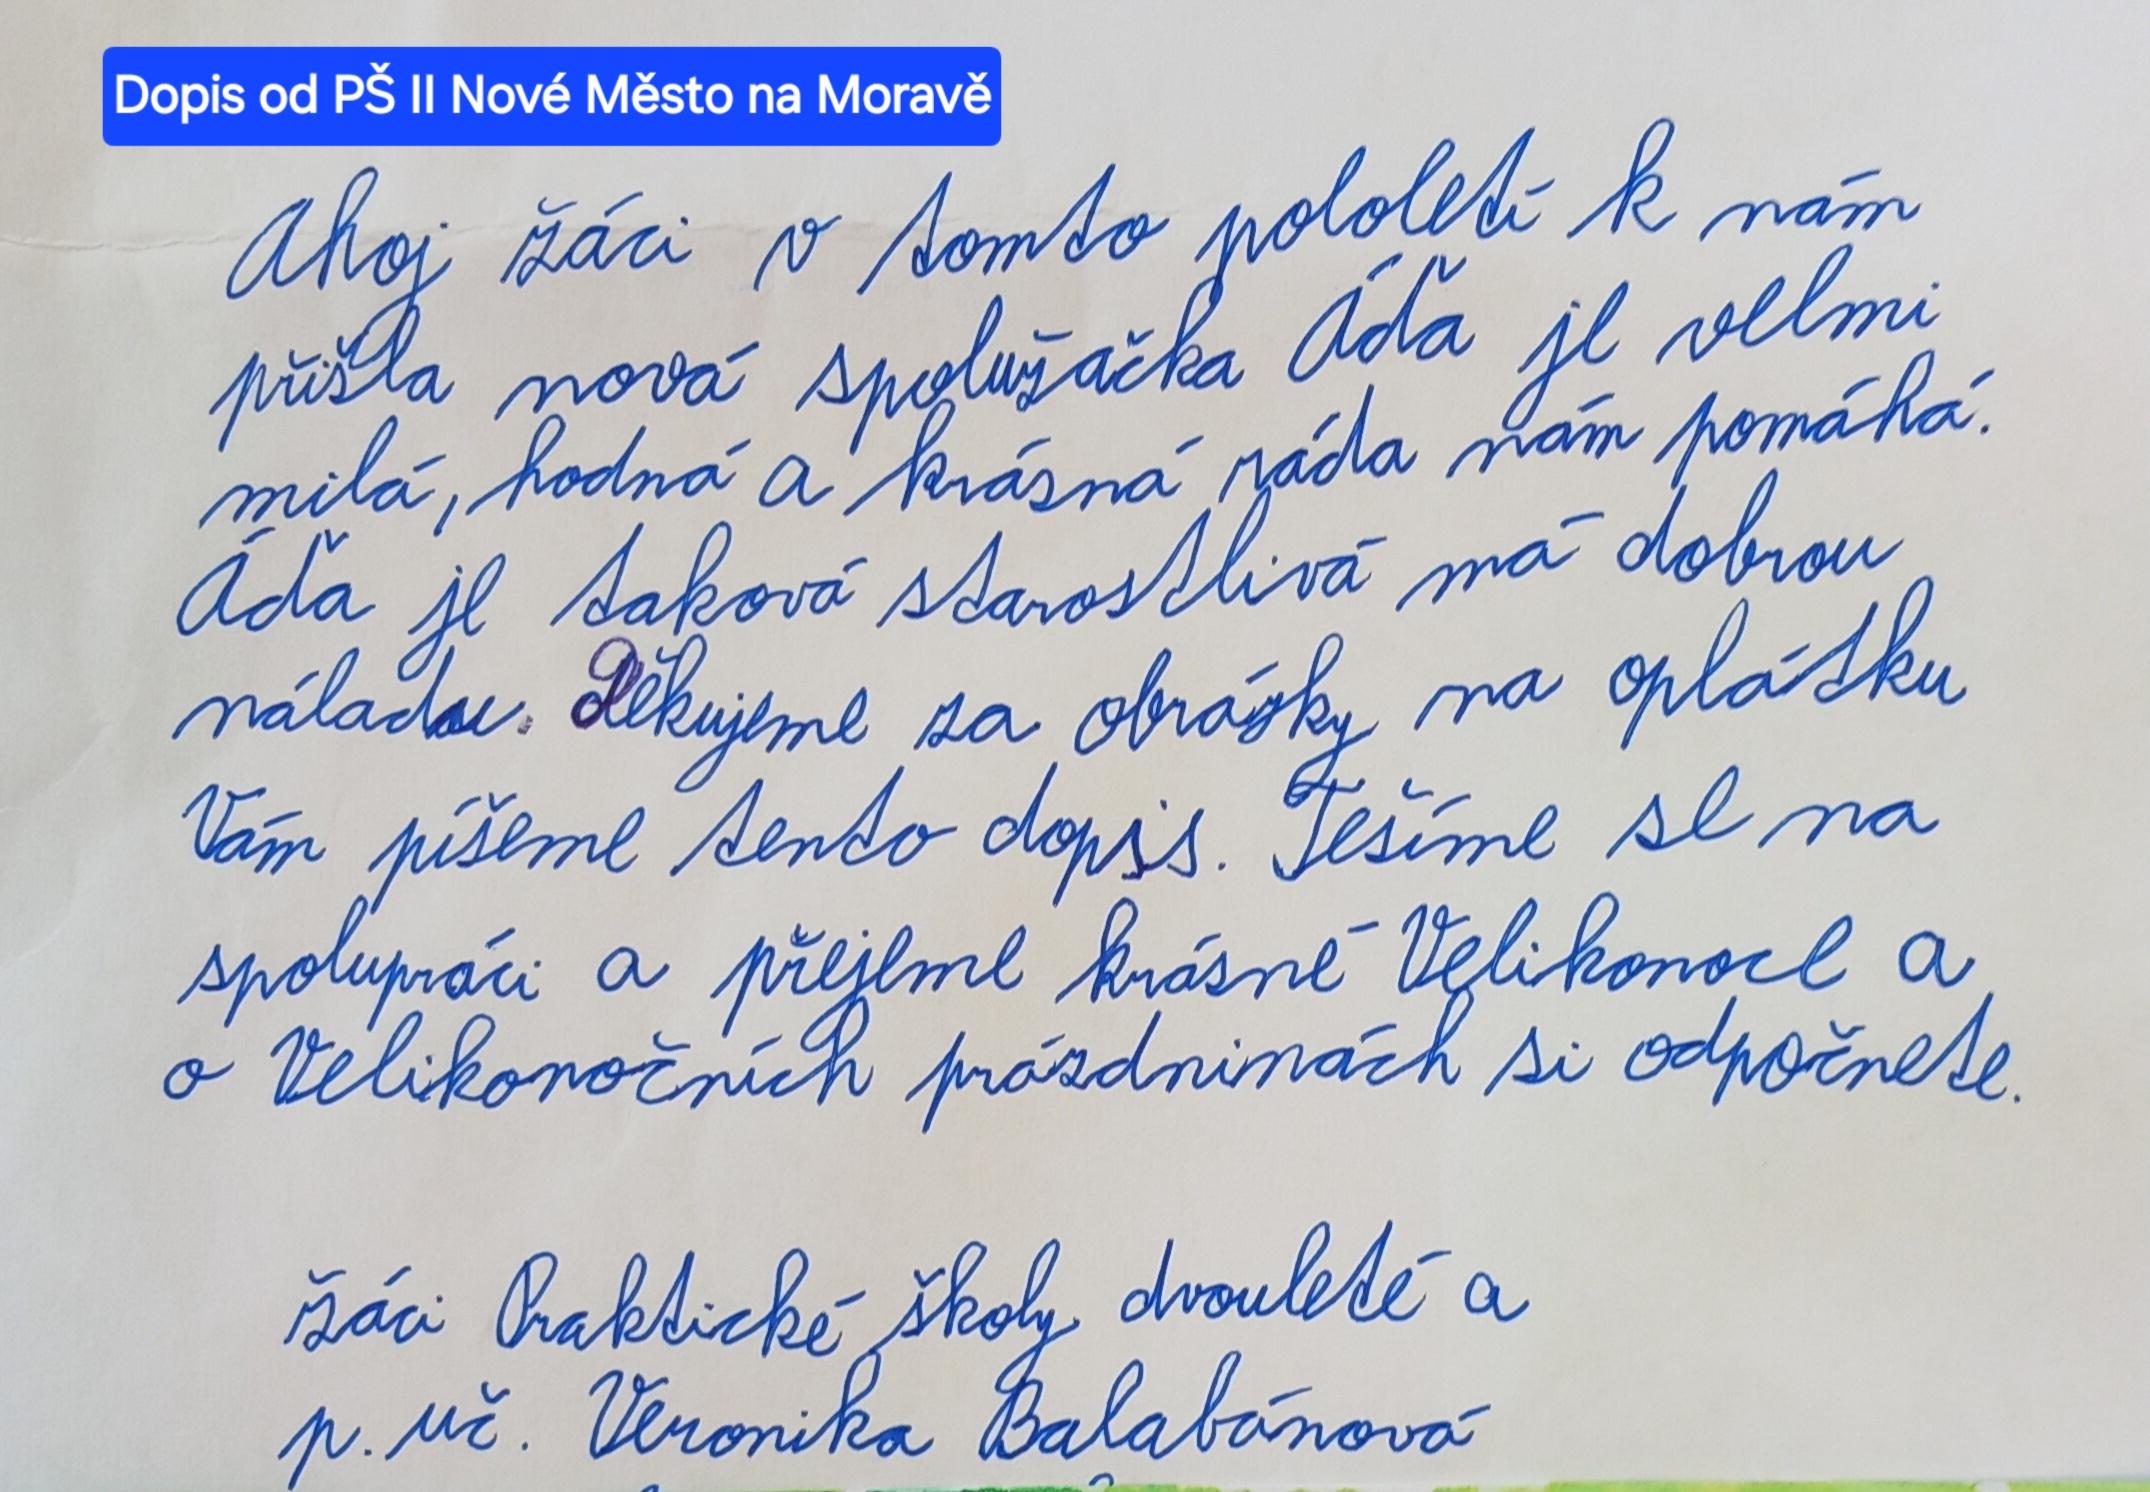 Dopis od PŠ II Nové Město na Moravě
Ahoj žáci v tomto pololetí k nám
přišla nová spolužačka Áďa je velmi
milá, hodná a krásná ráda nám pomáhá.
Áďa je taková starostlivá má dobrou
náladu. Děkujeme za obrázky na oplátku
Vám píšeme tento dopis. Těšíme se na
spolupráci a přejeme krásné Velikonoce a
o Velikonočních prázdninách si odpočnete.
žáci Praktické školy dvouleté a
p. uč. Veronika Balabánová